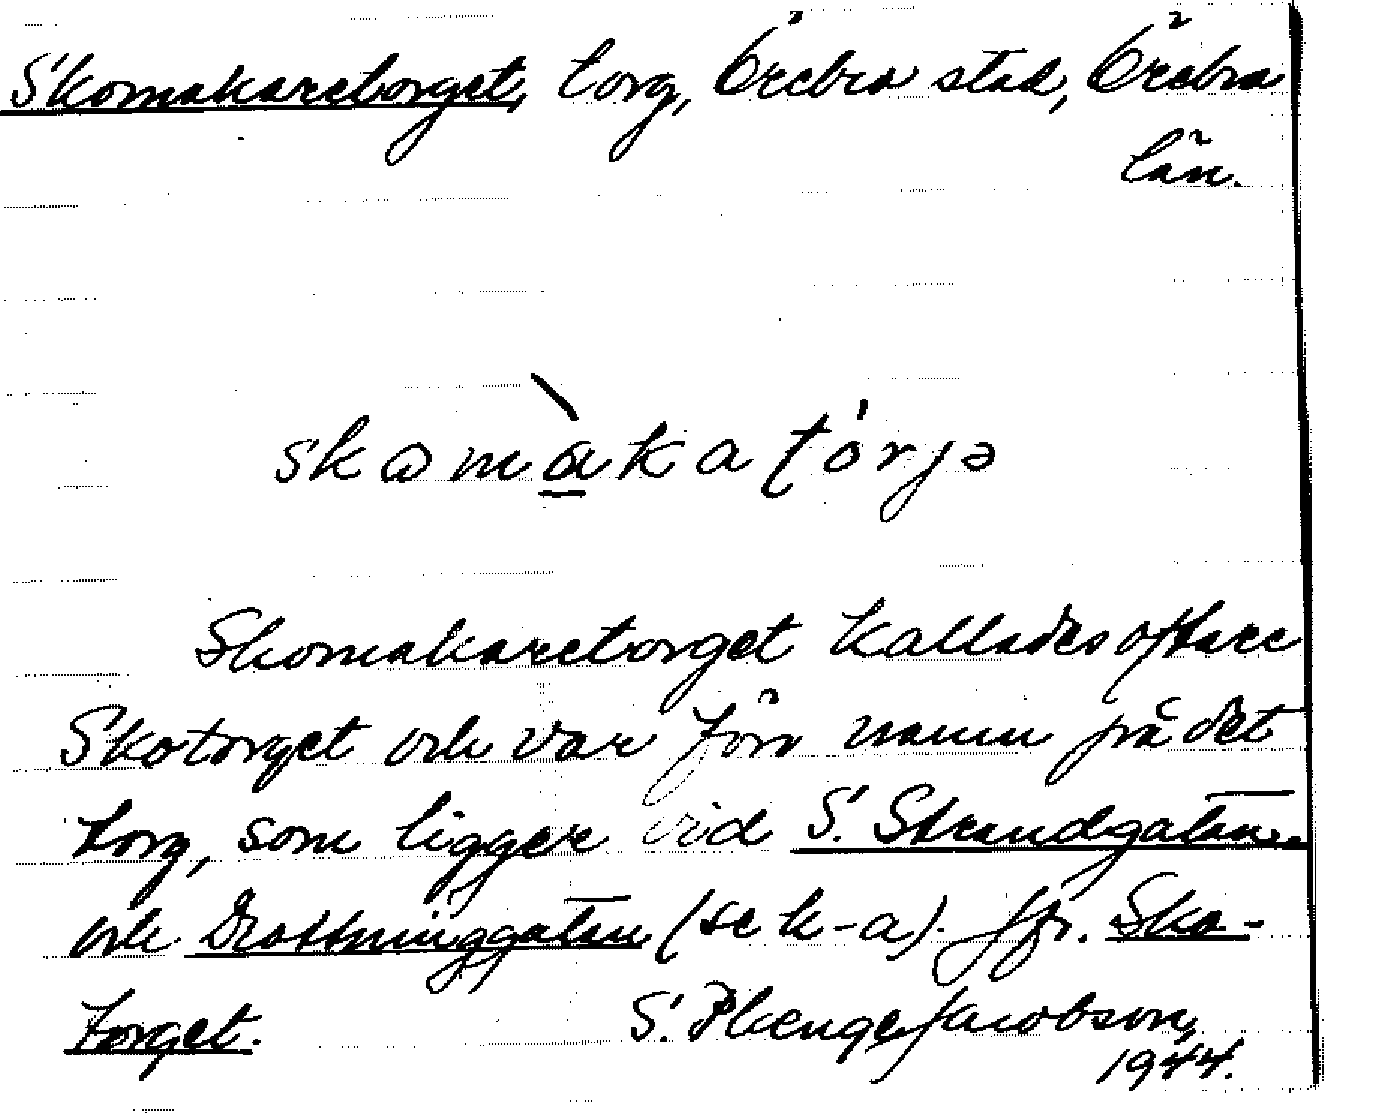 Skomakaretorget, torg, Örebro stad, Örebro
län.
skomàkatórjə
Skomakaretorget kallades oftare
Skotorget och var förr namn på det
torg, som ligger vid S. Strandgatan
och Drottninggatan (se k-a). Jfr. Sko-
torget. S. Plenge Jacobson,
1944.